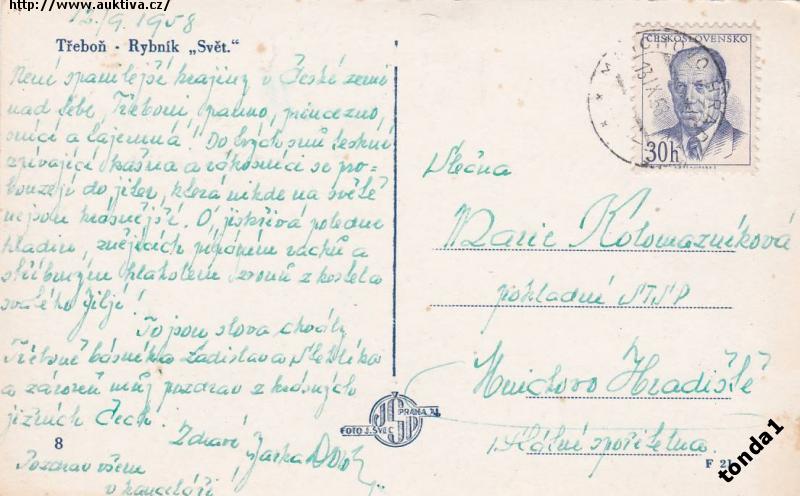 http://www.auktiva.cz/
12./9. 1958
Třeboň - Rybník „Svět."
Není spanilejší krajiny v České zemi
nad tebe, Třeboni, panno, princezno,
snící a tajemná! Do tvých snů teskní
zpívající kašna a rákosníci se pro-
bouzejí do jiter, která nikde na světě
nejsou krásnější. Ó, jiskřivá poledne
hladin, znějících pípáním racků a
stříbrným hlaholem zvonů z kostela
svatého Jiljí!
To jsou slova chvály
Třeboně básníka Ladislava Stehlíka
a zároveň můj pozdrav z krásných
jižních Čech.
Zdraví, Jarka
Pozdrav všem
v kanceláři!
8
ČESKOSLOVENSKO
30h
Slečna
Marie Kolomazníková
pokladní STSP
Mnichovo Hradiště
Státní spořitelna.
FOTO J. ŠVEC
PRAHA XI.
F 21
tonda1